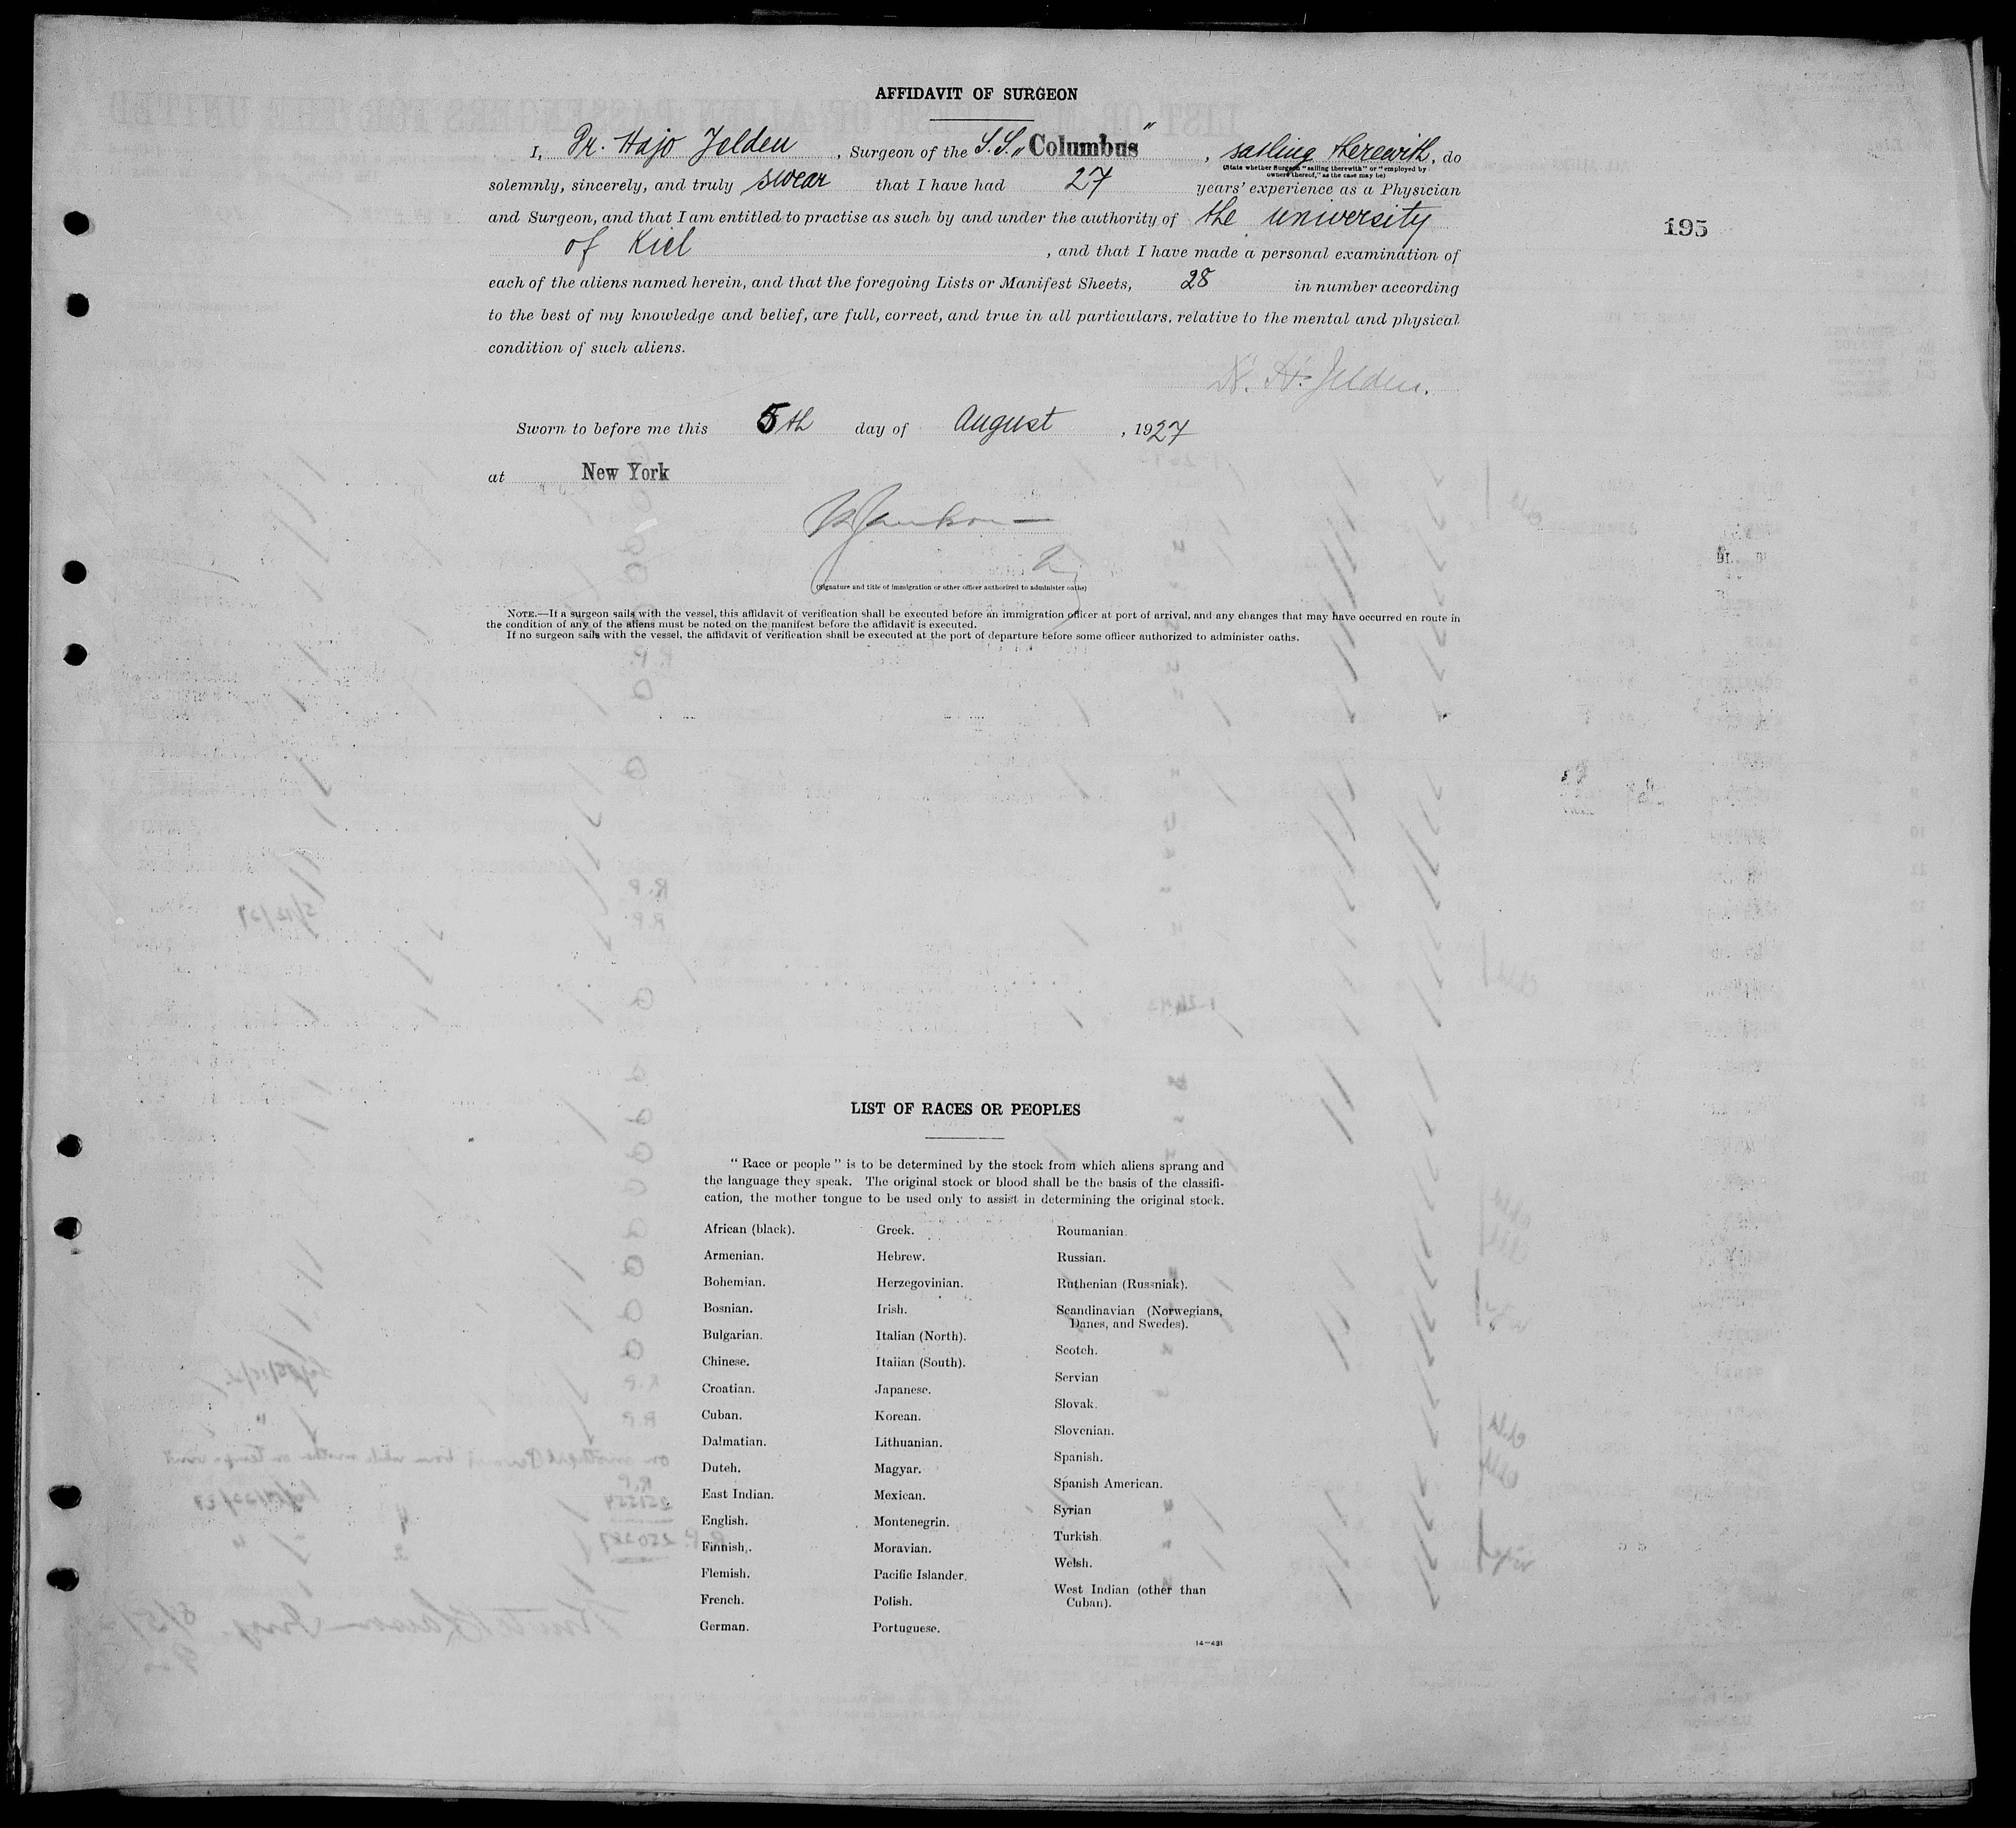 AFFIDAVIT OF SURGEON
I, Dr. Hajo Jelden, Surgeon of the S.S. „Columbus", sailing therewith, do
(State whether Surgeon "sailing therewith" or "employed by
owners thereof," as the case may be)
solemnly, sincerely, and truly swear that I have had 27 years' experience as a Physician
and Surgeon, and that I am entitled to practise as such by and under the authority of the university
195
of Kiel, and that I have made a personal examination of
each of the aliens named herein, and that the foregoing Lists or Manifest Sheets, 28 in number according
to the best of my knowledge and belief, are full, correct, and true in all particulars, relative to the mental and physical
condition of such aliens.
Jelden.
Sworn to before me this 5th day of August, 1927
at New York
(Signature and title of immigration or other officer authorized to administer oaths)
NOTE.—If a surgeon sails with the vessel, this affidavit of verification shall be executed before an immigration officer at port of arrival, and any changes that may have occurred en route in
the condition of any of the aliens must be noted on the manifest before the affidavit is executed.
If no surgeon sails with the vessel, the affidavit of verification shall be executed at the port of departure before some officer authorized to administer oaths.
LIST OF RACES OR PEOPLES
"Race or people" is to be determined by the stock from which aliens sprang and
the language they speak. The original stock or blood shall be the basis of the classifi-
cation, the mother tongue to be used only to assist in determining the original stock.
African (black).
Armenian.
Bohemian.
Bosnian.
Bulgarian.
Chinese.
Croatian.
Cuban.
Dalmatian.
Dutch.
East Indian.
English.
Finnish.
Flemish.
French.
German.
Greek.
Hebrew.
Herzegovinian.
Irish.
Italian (North).
Italian (South).
Japanese.
Korean.
Lithuanian.
Magyar.
Mexican.
Montenegrin.
Moravian.
Pacific Islander.
Polish.
Portuguese.
Roumanian.
Russian.
Ruthenian (Russniak).
Scandinavian (Norwegians,
Danes, and Swedes).
Scotch.
Servian
Slovak.
Slovenian.
Spanish.
Spanish American.
Syrian
Turkish
Welsh.
West Indian (other than
Cuban).
14—431